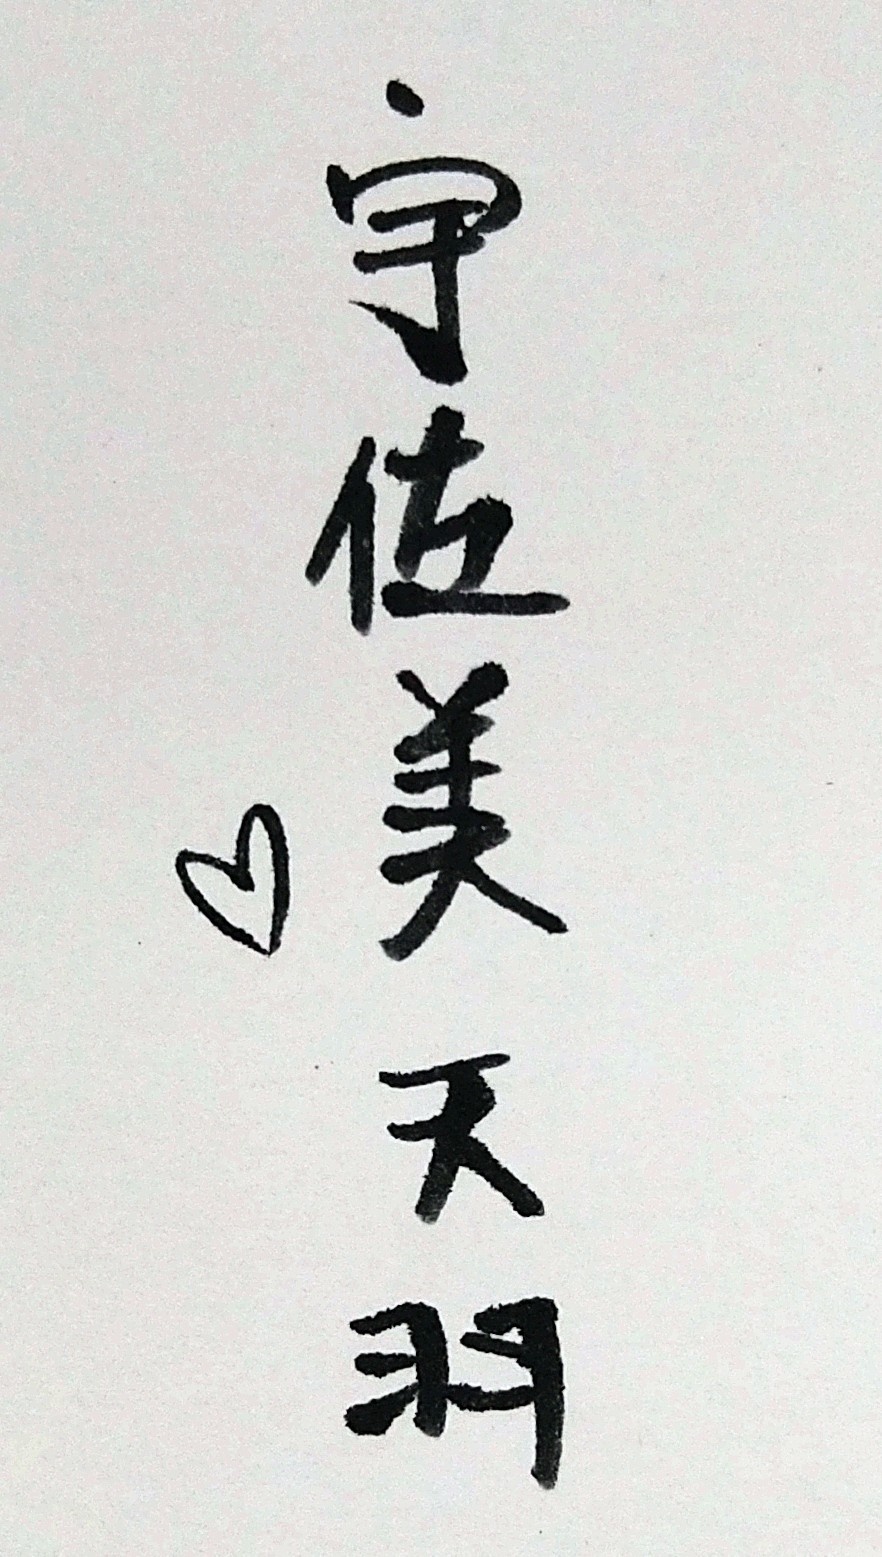 宇佐美天羽